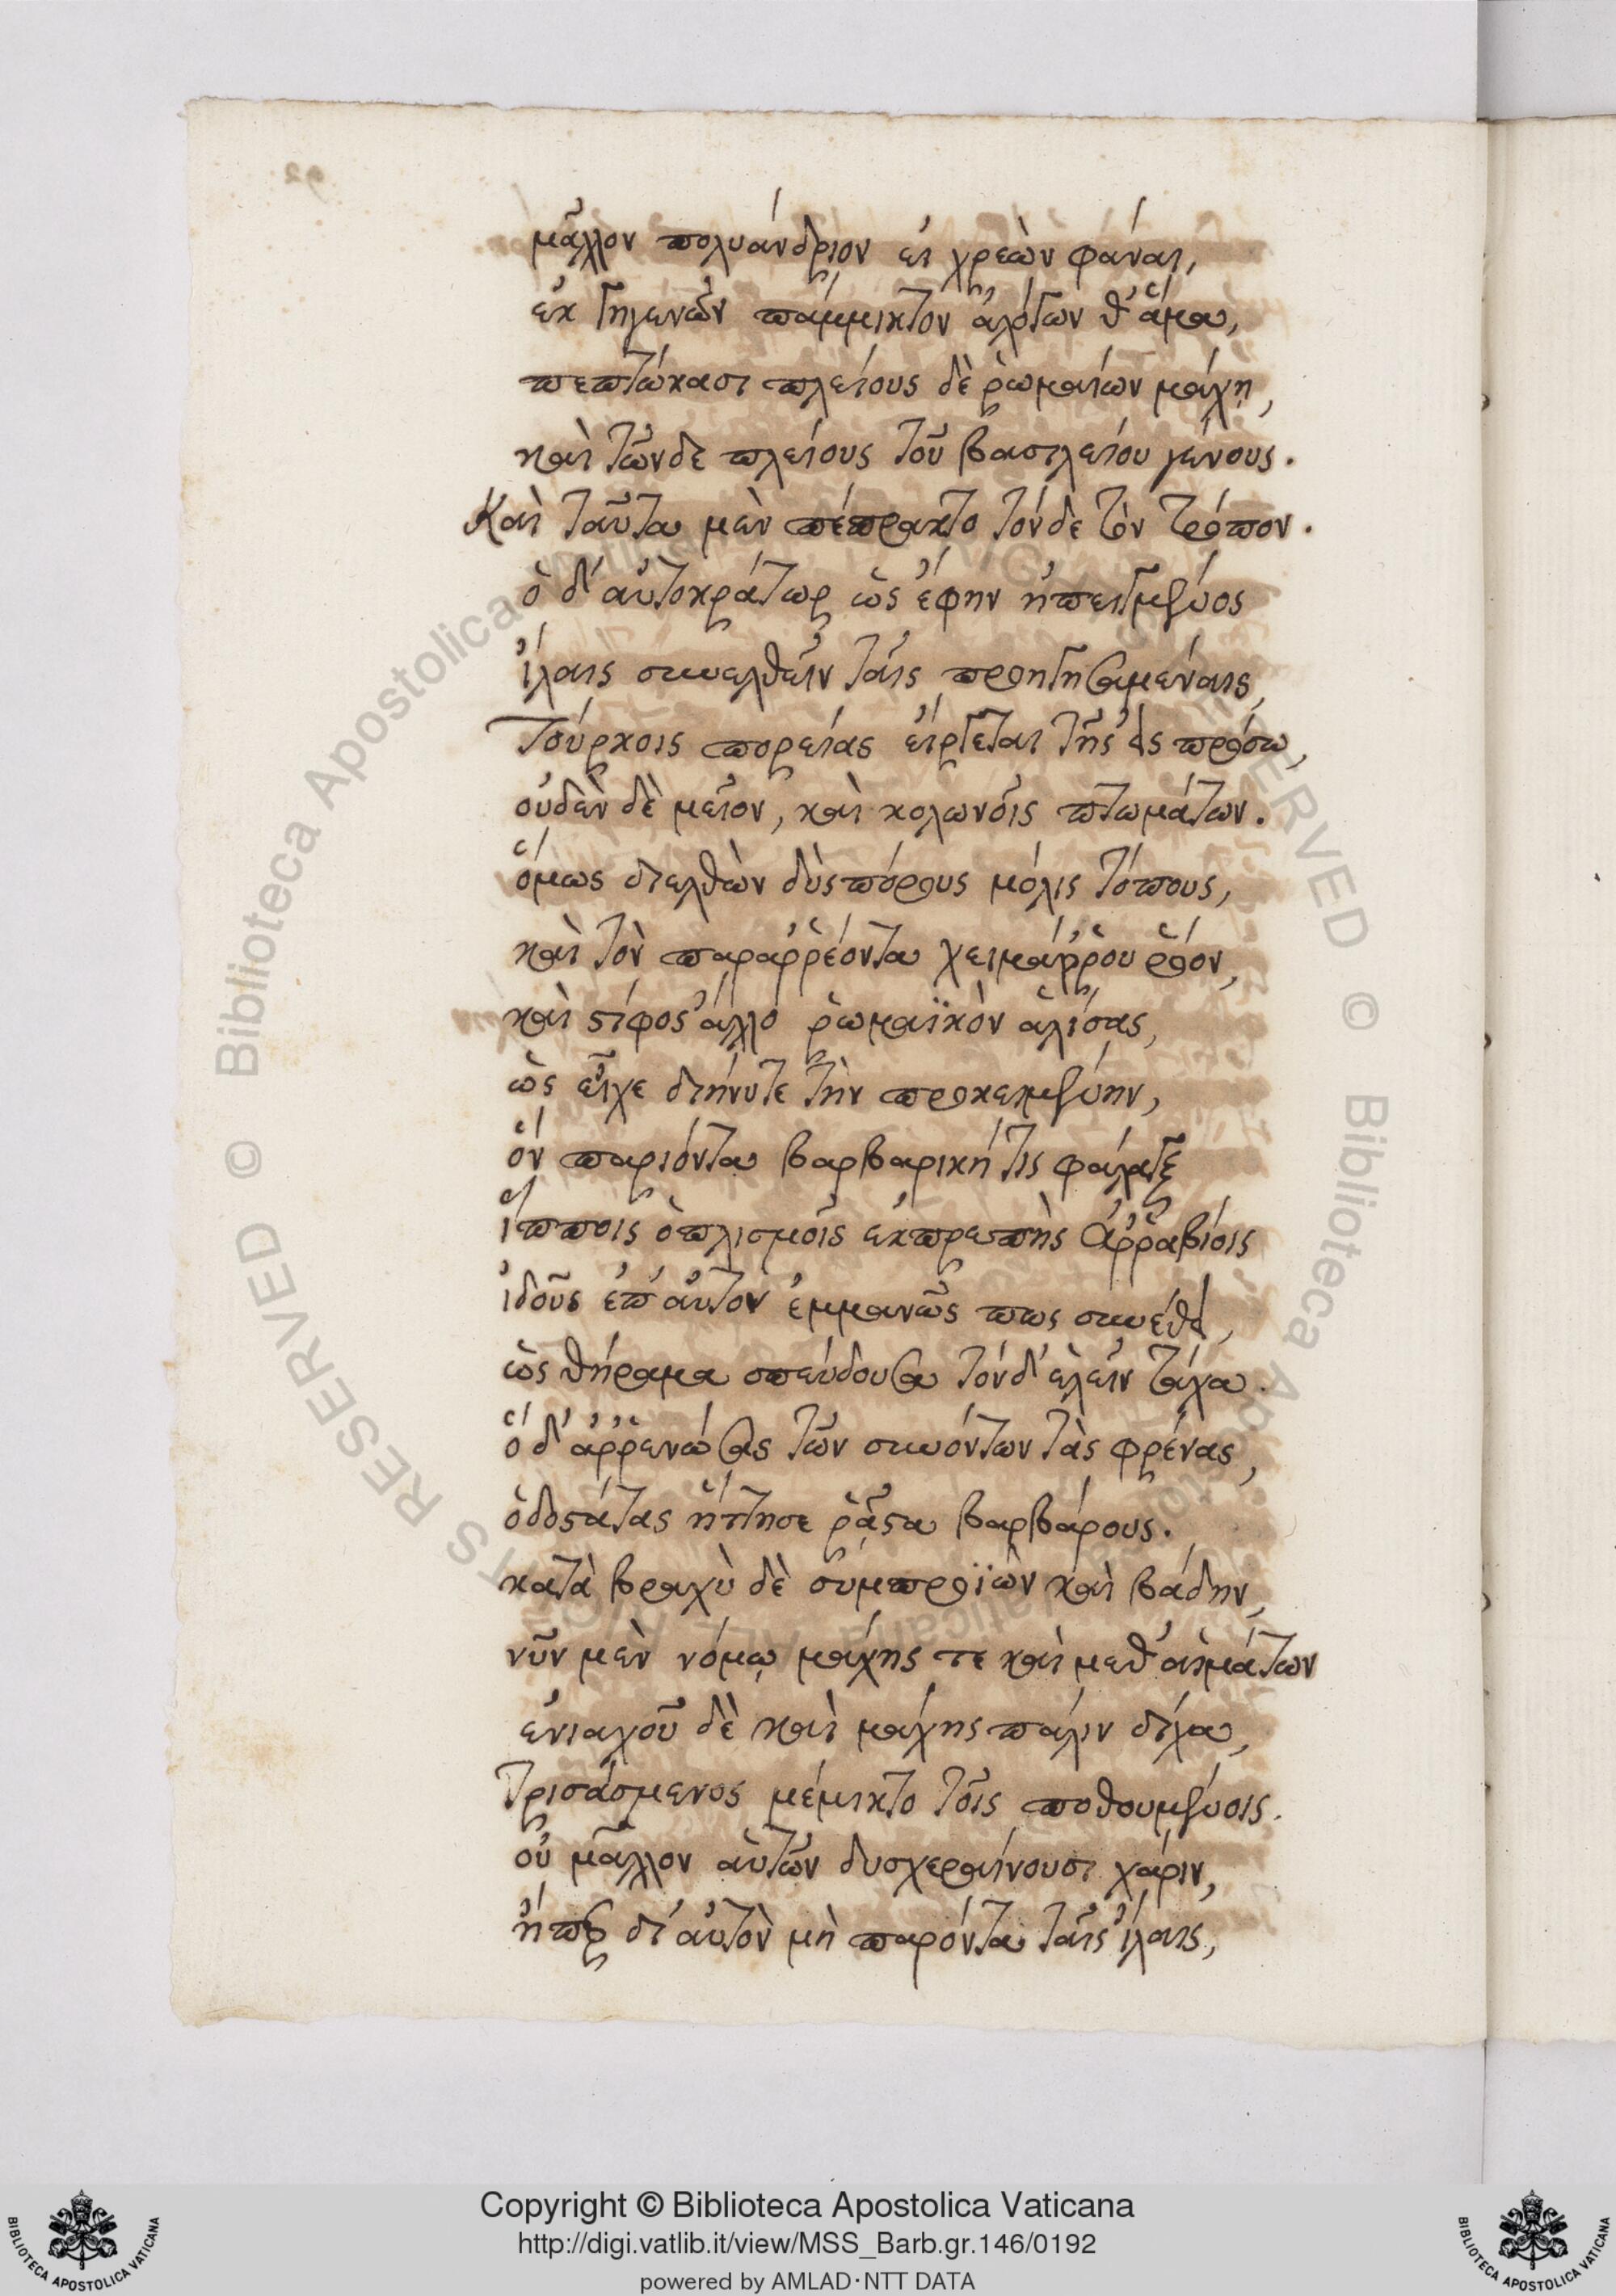 μᾶλλον πολυάνδριον εἰ χρεὼν φάναι,
ἐκ γηγενῶν πάμμικτον ἀλότων θ' ἅμα,
πεπτώκασι πλείους δὲ ῥωμαίων μάχῃ,
καὶ τῶνδε πλείους τοῦ βασιλείου γένους.
Καὶ ταῦτα μὲν πέπρακτο τόνδε τὸν τρόπον.
ὁ δ' αὐτοκράτωρ ὡς ἔφην ἠπειγμένος
ἴλαις συνελθεῖν ταῖς προηγησαμέναις,
Τούρκοις πορείας εἴργεται τῆς εἰς πρόσω,
οὐδὲν δὲ μεῖον, καὶ κολωνοῖς πτωμάτων.
ὅμως διελθὼν δὺσπόρους μόλις τόπους,
καὶ τὸν παραῤῥέοντα χειμάῤῥου ῥόον,
καὶ στίφος ἄλλο ῥωμαϊκὸν ἁλίσας,
ὡς εἶχε διήνυτε τὴν προκειμένην,
ὃν παριόντα βαρβαρική τις φάλαγξ
ἵπποις ὁπλισμοῖς ἐκπρεπὴς ἀῤῥαβίοις
ἰδοῦς ἐπ' αὐτὸν ἐμμανῶς πως συνέθει,
ὡς θήραμα σπεύδουσα τόνδ' ἑλεῖν τάχα.
ὁ δ' ἀῤῥενώσας τῶν συνόντων τὰς φρένας,
ὁδοστάτας ἥττησε ῥᾷστα βαρβάρους.
κατὰ βραχὺ δὲ συμπροϊὼν καὶ βάδην,
νῦν μὲν νόμῳ μάχης τε καὶ μεθ' αἱμάτων
ἐνιαχοῦ δὲ καὶ μάχης πάλιν δίχα,
τρισάσμενος μέμικτο τοῖς ποθουμένοις.
οὐ μᾶλλον αὑτῶν δυσχεραίνουσι χάριν,
ἤπερ δι' αὐτὸν μὴ παρόντα ταῖς ἴλαις,
Copyright © Biblioteca Apostolica Vaticana
http://digi.vatlib.it/view/MSS_Barb.gr.146/0192
powered by AMLAD·NTT DATA